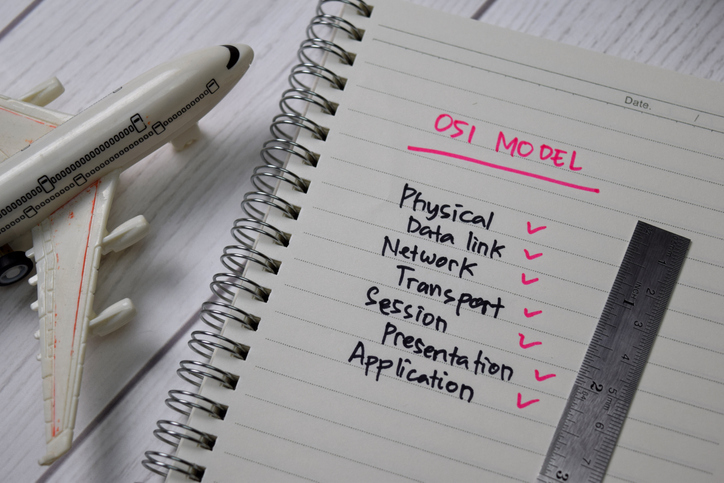 Date. /
OSI MODEL
Physical ✓
Data link ✓
Network ✓
Transport ✓
Session ✓
Presentation ✓
Application ✓
1
2
3
4
5
6
7
1
2
3